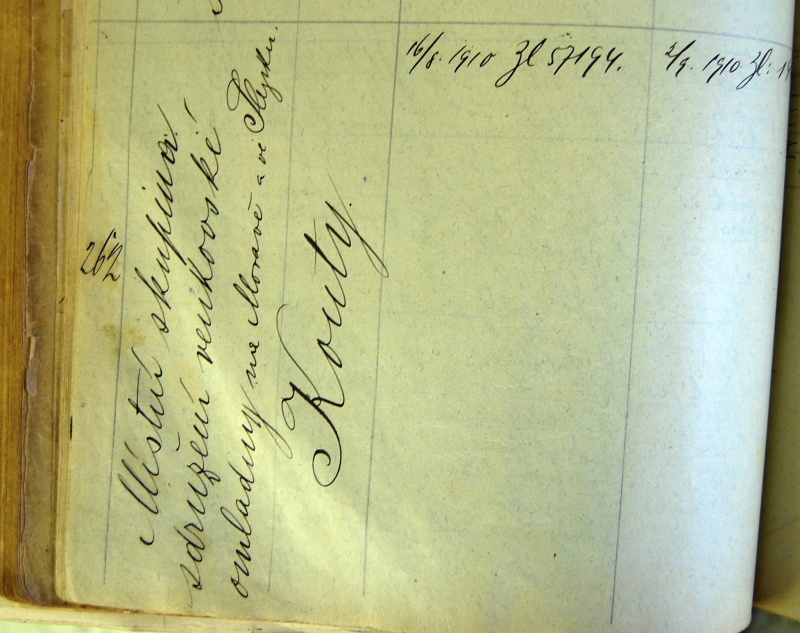 262
Místní skupina
sdružení venkovské
omladiny na Moravě a ve Slezku.
Kouty.
16/8. 1910 Zl 57194.
2/9. 1910 Zl: